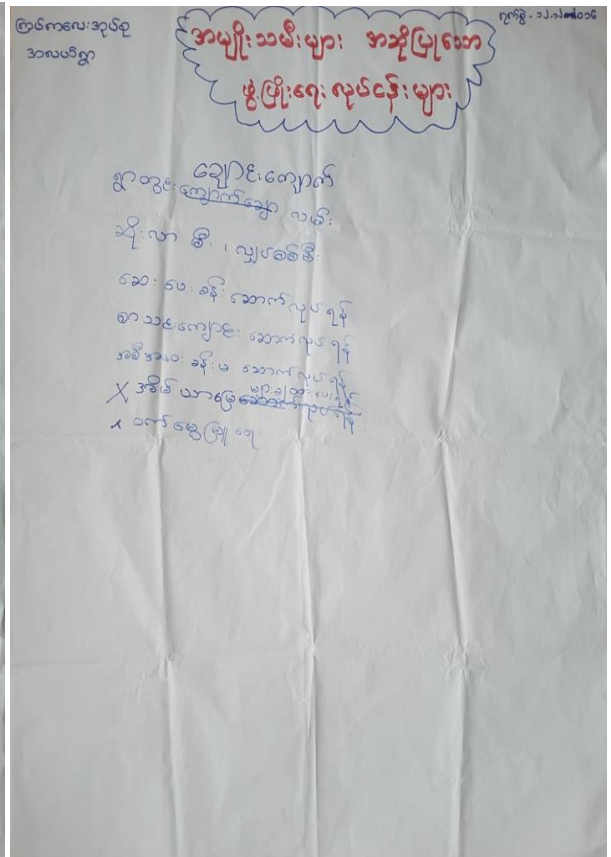 ကြပ်ကလေးအုပ်စု
အလယ်ရွာ
အမျိုးသမီးများ အဆိုပြုသော
ဖွံ့ဖြိုးရေး လုပ်ငန်းများ
ရက်စွဲ -
ချောင်းကျောက်
ရွာတွင်း ကျောက်ချော လမ်း
ဆိုလာ မီး ၊ လျှပ်စစ်မီး
ဆေး ပေး ခန်း ဆောက်လုပ်ရန်
စာသင်ကျောင်း ဆောက်လုပ်ရန်
အစည်းအဝေး ခန်း မ ဆောက်လုပ်ရန်
X အိမ် ယာမြေ ဆောက်လုပ်ရန်
x ဝက် မွေးမြူ ရေး